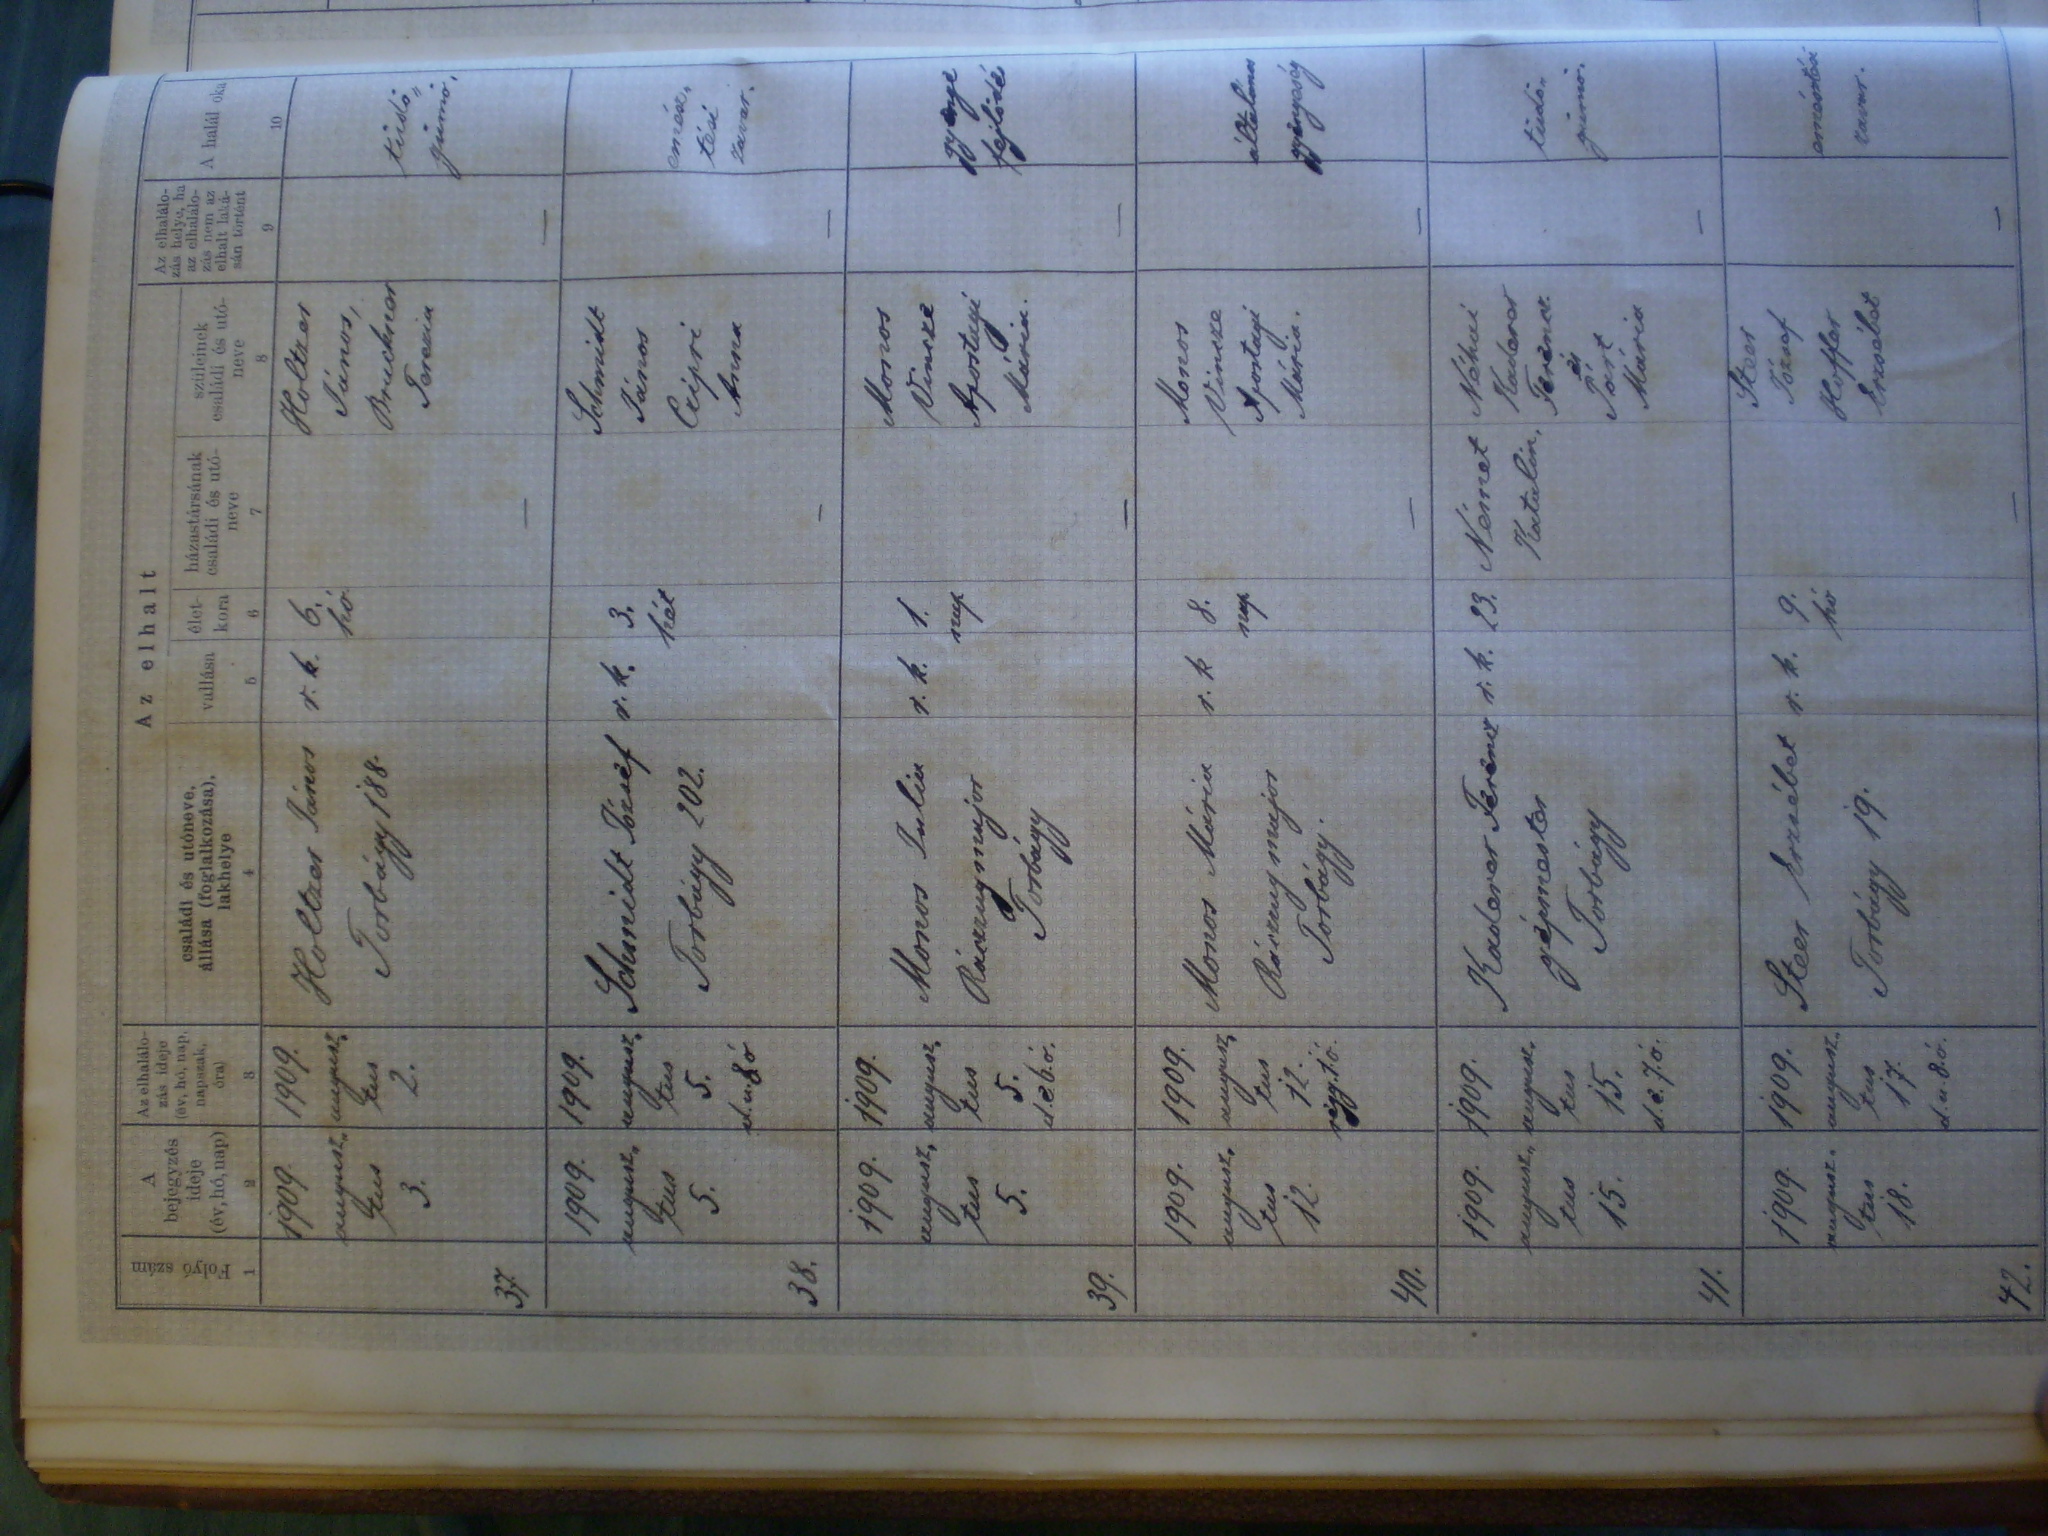 Az elhalt
Folyó szám
A
bejegyzés
ideje
(év, hó, nap)
Az elhalálo-
zás ideje
(év, hó, nap,
napszak,
óra)
családi és utóneve,
állása (foglalkozása),
lakhelye
vallása
élet-
kora
házastársának
családi és utó-
neve
szüleinek
családi és utó-
neve
Az elhalálo-
zás helye, ha
az elhalálo-
zás nem az
elhalt laká-
sán történt
A halál oka
1
2
3
4
5
6
7
8
9
10
37.
1909.
augusz„
tus
3.
1909.
augusz„
tus
2.
Holtzer János
Torbágy 188.
r. k.
6.
hó
—
Holtzer
János,
Bruckner
Terezia
—
tüdő„
gümő.
38.
1909.
augusz„
tus
5.
1909.
augusz„
tus
5.
d.u.8ó
Schmidt József
Torbágy 202.
r. k.
3.
hét
—
Schmidt
János
Czipri
Anna
—
emész„
tési
zavar.
39.
1909.
augusz„
tus
5.
1909.
augusz„
tus
5.
d.e6.ó.
Monos Julia
Torbágy
r. k.
1.
nap
—
Monos
Vincze
Apostagi
Mária.
—
gyenge
fejlődé
40.
1909.
augusz„
tus
12.
1909.
augusz„
tus
12.
reg.1.ó.
Monos Mária
Torbágy.
r. k
8.
nap
—
Monos
Vincze
Apostagi
Mária.
—
általános
gyengeség
41.
1909.
augusz„
tus
15.
1909.
augusz„
tus
15.
d.e.7.ó.
Kaderer Ferencz
gépmester
Torbágy
r. k.
23.
Német
Katalin,
Néhai
Kaderer
Ferencz
és
Mária
—
tüdő„
gümő.
42.
1909.
augusz„
tus
18.
1909.
augusz„
tus
17.
d.u.8.ó.
Steer Erzsébet
Torbágy 19.
r. k.
9.
hó
—
Steer
József
Hoffer
Erzsébet
—
emésztési
zavar.